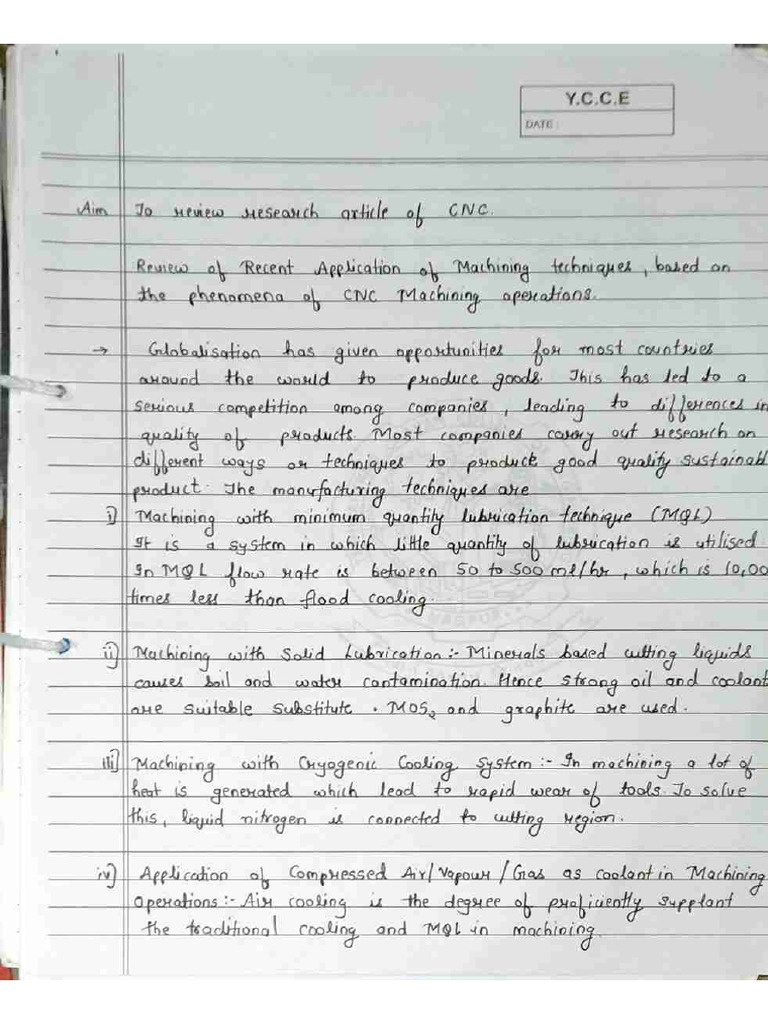 Y.C.C.E
DATE :
Aim To review research article of CNC.
Review of Recent Application of Machining techniques, based on
the phenomena of CNC Machining operations.
→ Globalisation has given opportunities for most countries
around the world to produce goods. This has led to a
serious competition among companies, leading to differences in
quality of products. Most companies carry out research on
different ways or techniques to produce good quality sustainabl
product. The manufacturing techniques are
i) Machining with minimum quantity lubrication technique (MQL)
It is a system in which little quantity of lubrication is utilised.
In MQL flow rate is between 50 to 500 ml/hr, which is 10,00
times less than flood cooling.
ii) Machining with Solid Lubrication :- Minerals based cutting liquids
causes soil and water contamination. Hence strong oil and coolant
are suitable substitute. MOS2 and graphite are used.
iii) Machining with Cryogenic Cooling System :- In machining a lot of
heat is generated which lead to rapid wear of tools. To solve
this, liquid nitrogen is connected to cutting region.
iv) Application of Compressed Air/Vapour/Gas as coolant in Machining
Operations :- Air cooling is the degree of proficiently supplant
the traditional cooling and MQL in machining.